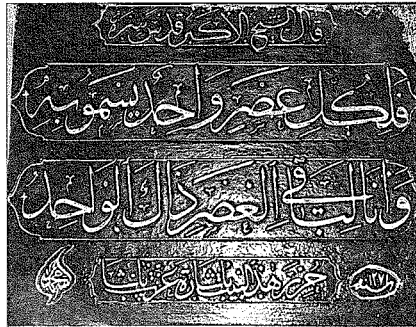 قال الشيخ الاكبر قدس سره
فلكل عصر واحد يسمو به
وأنا لباقي العصر ذاك الواحد
حرر هذا